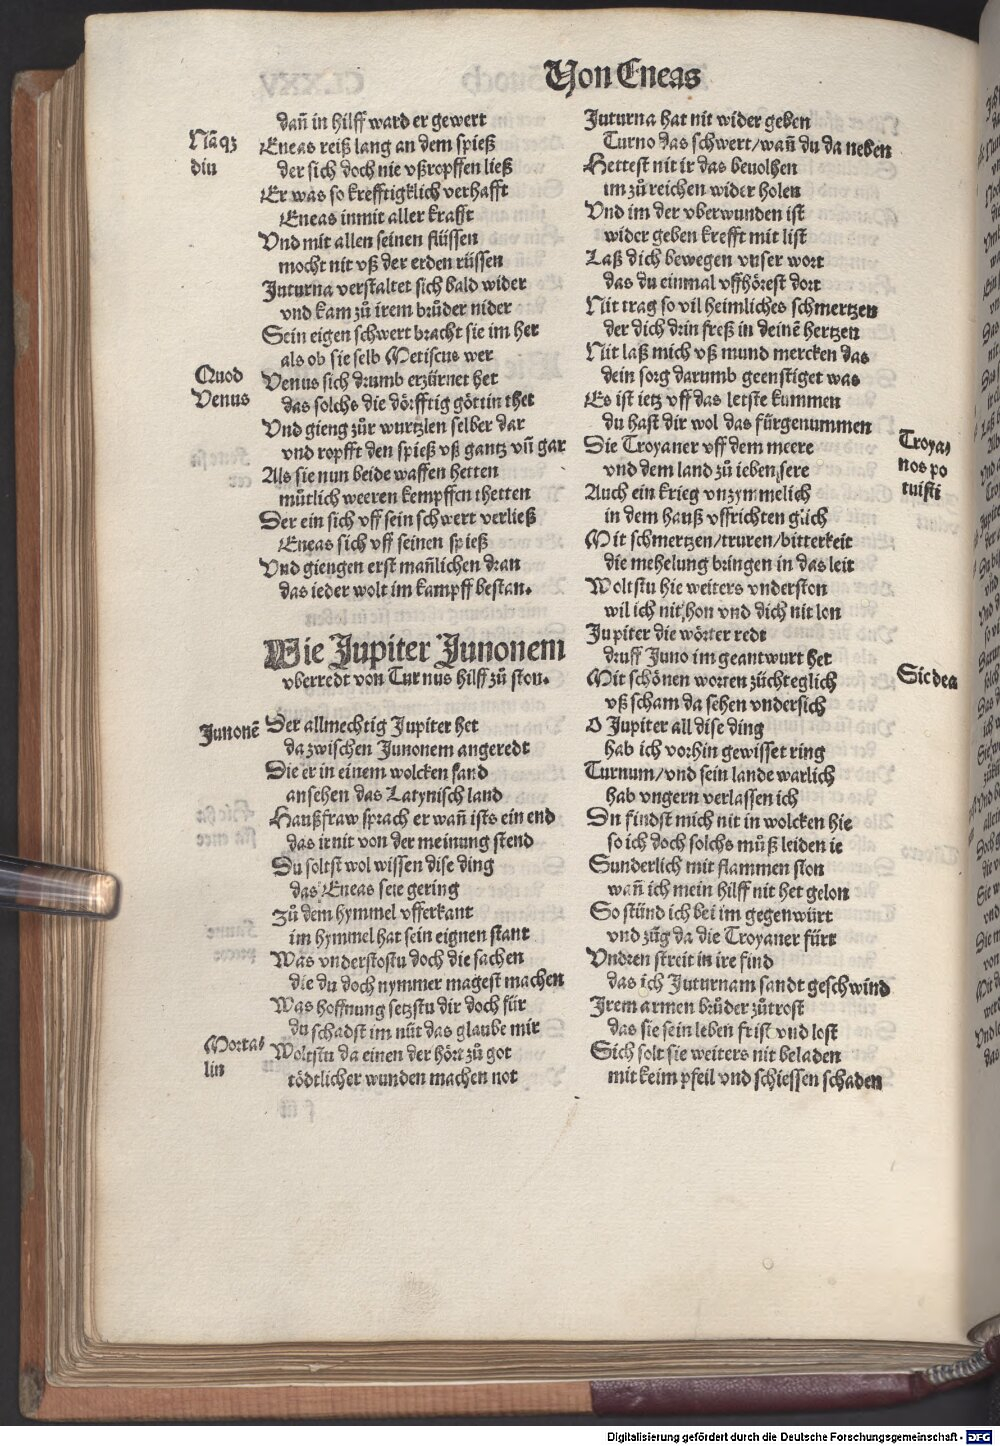 Von Eneas
dañ in hilff ward er gewert
Nãqꝫ
din
Eneas reiß lang an dem spieß
der sich doch nie vßropffen ließ
Er was so krefftigklich verhafft
Eneas in mit aller krafft
Vnd mit allen seinen flüssen
mocht nit vß der erden rüssen
Juturna verstaltet sich bald wider
vnd kam zů irem brůder nider
Sein eigen schwert bracht sie im her
als ob sie selb Metiscus wer
Quod
Venus
Venus sich drumb erzürnet het
das solchs die dörfftig göttin thet
Vnd gieng zůr wurtzlen selber dar
vnd ropfft den spieß vß gantz vñ gar
Als sie nun beide waffen hetten
můtlich weeren kempffen thetten
Der ein sich vff sein schwert verließ
Eneas sich vff seinen spieß
Vnd giengen erst mañlichen dran
das ieder wolt im kampff bestan.
Wie Jupiter Junonem
vberredt von Turnus hilff zů ston.
Junonẽ
Der allmechtig Jupiter het
da zwischen Junonem angeredt
Die er in einem wolcken fand
ansehen das Latynisch land
Haußfraw sprach er wañ ists ein end
das ir nit von der meinung stend
Du soltst wol wissen dise ding
das Eneas seie gering
Zů dem hymmel vfferkant
im hymmel hat sein eignen stant
Was vnderstostu doch die sachen
die du doch nymmer magest machen
Was hoffnung setzstu dir doch für
du schadst im nüt das glaube mir
Morta-
lin
Woltstu da einen der hört zů got
tödtlicher wunden machen not
Juturna hat nit wider geben
Turno das schwert/wañ du da neben
Hettest nit ir das beuolhen
im zů reichen wider holen
Vnd im der vberwunden ist
wider geben krefft mit list
Laß dich bewegen vnser wort
das du einmal vffhörest dort
Nit trag so vil heimliches schmertzen
der dich drin freß in deinẽ hertzen
Nit laß mich vß mund mercken das
dein sorg darumb geenstiget was
Es ist ietz vff das letste kummen
du hast dir wol das fürgenummen
Troya-
nos po
tuisti
Die Troyaner vff dem meere
vnd dem land zů ieben sere
Auch ein krieg vnzymmelich
in dem hauß vffrichten glich
Mit schmertzen/truren/bitterkeit
die mehelung bringen in das leit
Woltstu hie weiters vnderston
wil ich nit hon vnd dich nit lon
Jupiter die wörter redt
druff Juno im geantwurt het
Sic dea
Mit schönen worten züchteglich
vß scham da sehen vndersich
O Jupiter all dise ding
hab ich vorhin gewisset ring
Turnum/vnd sein lande warlich
hab vngern verlassen ich
Du findst mich nit in wolcken hie
so ich doch solchs můß leiden ie
Sunderlich mit flammen ston
wañ ich mein hilff nit het gelon
So stünd ich bei im gegenwürt
vnd züg da die Troyaner fürt
Vndren streit in ire find
das ich Juturnam sandt geschwind
Irem armen brůder zůtrost
das sie sein leben frist vnd lost
Sich solt sie weiters nit beladen
mit keim pfeil vnd schiessen schaden
Digitalisierung gefördert durch die Deutsche Forschungsgemeinschaft - DFG